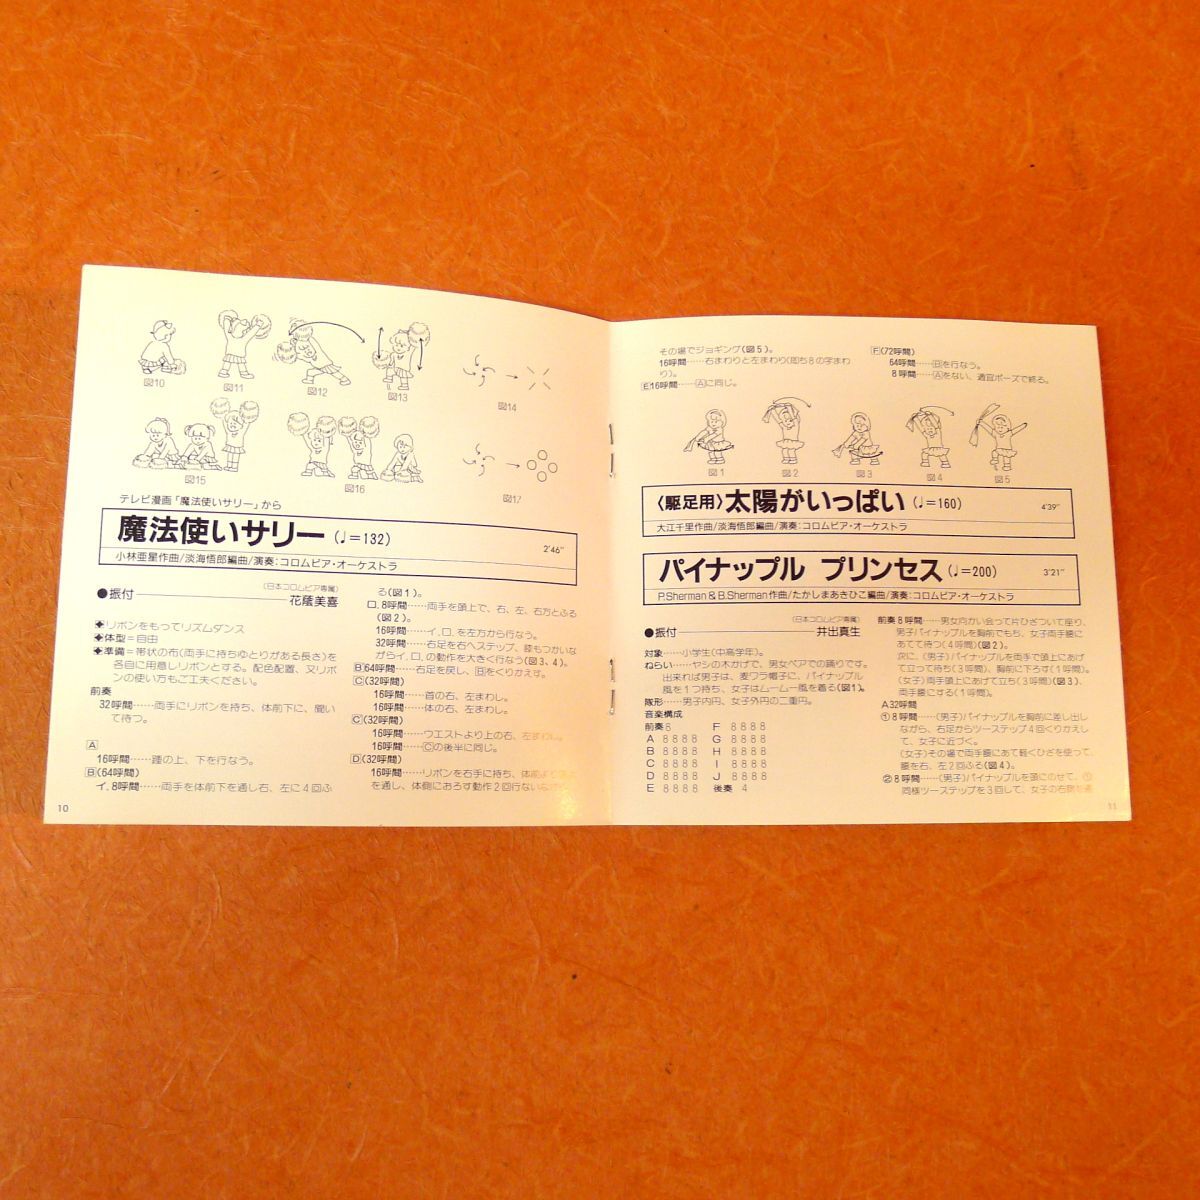 図10
図11
図12
図13
図14
図15
図16
図17
テレビ漫画「魔法使いサリー」から
魔法使いサリー(♩=132)
2′46″
小林亜星作曲/淡海悟郎編曲/演奏:コロムビア・オーケストラ
(日本コロムビア専属)
●振付――花蔭美喜
✦リボンをもってリズムダンス
✦体型=自由
✦準備=帯状の布(両手に持ちゆとりがある長さ)を
各自に用意しリボンとする。配色配置、又リボ
ンの使い方もご工夫ください。
前奏
32呼間……両手にリボンを持ち、体前下に、聞い
て待つ。
A
16呼間……踵の上、下を行なう。
B(64呼間)
イ.8呼間……両手を体前下を通し右、左に4回ふ
10
る(図1)。
ロ.8呼間……両手を頭上で、右、左、右方とふる
(図2)。
16呼間……イ.ロ.を左方から行なう。
32呼間……右足を右へステップ、膝もつかいな
がらイ.ロ.の動作を大きく行なう(図3、4)。
B′64呼間……右足を戻し、Bをくりかえす。
C(32呼間)
16呼間……首の右、左まわし。
16呼間……体の右、左まわし。
C′(32呼間)
16呼間……ウエストより上の右、左まわし。
16呼間……Cの後半に同じ。
D(32呼間)
16呼間……リボンを右手に持ち、体前より
を通し、体側におろす動作2回行ない
その場でジョギング(図5)。
16呼間……右まわりと左まわり(即ち8の字まわ
り)。
E16呼間……Aに同じ。
F(72呼間)
64呼間……Bを行なう。
8呼間……Aをない、適宜ポーズで終る。
図1
図2
図3
図4
図5
〈駆足用〉太陽がいっぱい(♩=160)
4′39″
大江千里作曲/淡海悟郎編曲/演奏:コロムビア・オーケストラ
パイナップル プリンセス(♩=200)
3′21″
P.Sherman & B.Sherman作曲/たかしまあきひこ編曲/演奏:コロムビア・オーケストラ
(日本コロムビア専属)
●振付――井出真生
対象……小学生(中高学年)。
ねらい……ヤシの木かげで、男女ペアでの踊りです。
出来れば男子は、麦ワラ帽子に、パイナップル
風を1つ持ち、女子はムームー風を着る(図1)。
隊形……男子内円、女子外円の二重円。
音楽構成
前奏8
A 8888
B 8888
C 8888
D 8888
E 8888
F 8888
G 8888
H 8888
I 8888
J 8888
後奏 4
前奏8呼間……男女向かい会って片ひざついて座り、
男子パイナップルを胸前でもち、女子両手腰に
あてて待つ(4呼間)(図2)。
次に、(男子)パイナップルを両手で頭上にあげ
て立って待ち(3呼間)、胸前に下ろす(1呼間)。
(女子)両手頭上にあげて立ち(3呼間)(図3)、
両手腰にする(1呼間)。
A32呼間
①8呼間……(男子)パイナップルを胸前に差し出し
ながら、右足からツーステップ4回くりかえし
て、女子に近づく。
(女子)その場で両手腰にあて軽くひざを使って、
腰を右、左2回ふる(図4)。
②8呼間……(男子)パイナップルを頭にのせて、①
同様ツーステップを3回して、女子の右
11